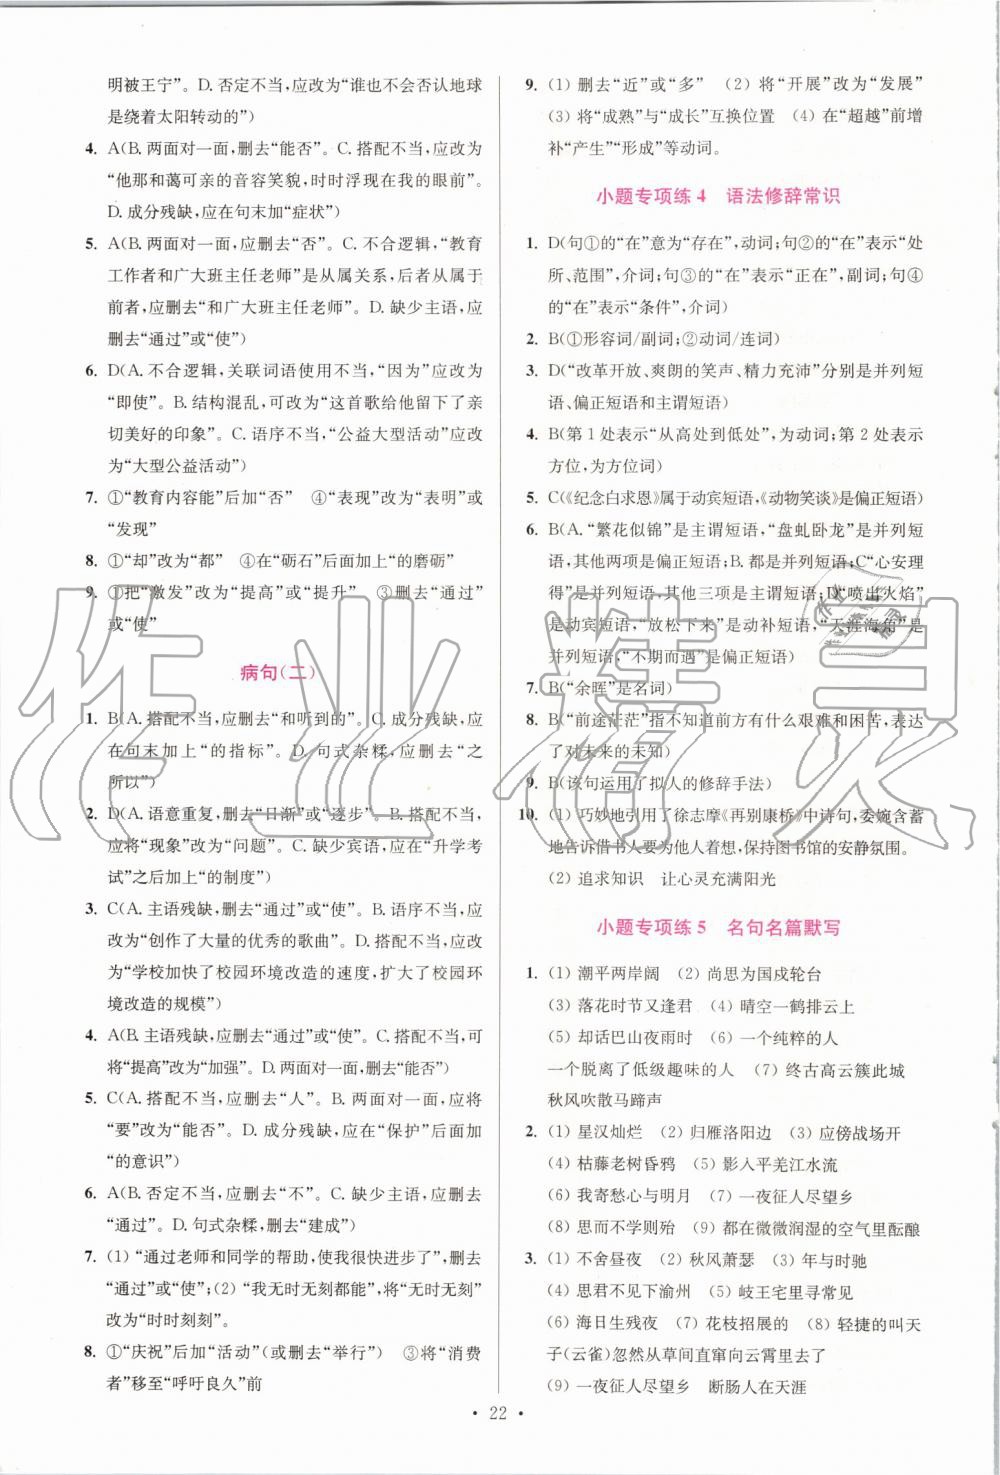 明被王宁”。D. 否定不当,应改为“谁也不会否认地球
是绕着太阳转动的”)
4. A(B. 两面对一面,删去“能否”。C. 搭配不当,应改为
“他那和蔼可亲的音容笑貌,时时浮现在我的眼前”。
D. 成分残缺,应在句末加“症状”)
5. A(B. 两面对一面,应删去“否”。C. 不合逻辑,“教育
工作者和广大班主任老师”是从属关系,后者从属于
前者,应删去“和广大班主任老师”。D. 缺少主语,应
删去“通过”或“使”)
6. D(A. 不合逻辑,关联词语使用不当,“因为”应改为
“即使”。B. 结构混乱,可改为“这首歌给他留下了亲
切美好的印象”。C. 语序不当,“公益大型活动”应改
为“大型公益活动”)
7. ①“教育内容能”后加“否” ④“表现”改为“表明”或
“发现”
8. ①“却”改为“都” ④在“砺石”后面加上“的磨砺”
9. ①把“激发”改为“提高”或“提升” ③删去“通过”
或“使”
病句(二)
1. B(A. 搭配不当,应删去“和听到的”。C. 成分残缺,应
在句末加上“的指标”。D. 句式杂糅,应删去“之
所以”)
2. D(A. 语意重复,删去“日渐”或“逐步”。B. 搭配不当,
应将“现象”改为“问题”。C. 缺少宾语,应在“升学考
试”之后加上“的制度”)
3. C(A. 主语残缺,删去“通过”或“使”。B. 语序不当,应
为“创作了大量的优秀的歌曲”。D. 搭配不当,应改
为“学校加快了校园环境改造的速度,扩大了校园环
境改造的规模”)
4. A(B. 主语残缺,应删去“通过”或“使”。C. 搭配不当,可
将“提高”改为“加强”。D. 两面对一面,应删去“能否”)
5. C(A. 搭配不当,应删去“人”。B. 两面对一面,应将
“要”改为“能否”。D. 成分残缺,应在“保护”后面加
“的意识”)
6. A(B. 否定不当,应删去“不”。C. 缺少主语,应删去
“通过”。D. 句式杂糅,删去“建成”)
7. (1) “通过老师和同学的帮助,使我很快进步了”,删去
“通过”或“使”;(2) “我无时无刻都能”,将“无时无刻”
改为“时时刻刻”。
8. ①“庆祝”后加“活动”(或删去“举行”) ③将“消费
者”移至“呼吁良久”前
9. (1) 删去“近”或“多” (2) 将“开展”改为“发展”
(3) 将“成熟”与“成长”互换位置 (4) 在“超越”前增
补“产生”“形成”等动词。
小题专项练 4 语法修辞常识
1. D(句①的“在”意为“存在”,动词;句②的“在”表示“处
所、范围”,介词;句③的“在”表示“正在”,副词;句④
的“在”表示“条件”,介词)
2. B(①形容词/副词;②动词/连词)
3. D(“改革开放、爽朗的笑声、精力充沛”分别是并列短
语、偏正短语和主谓短语)
4. B(第 1 处表示“从高处到低处”,为动词;第 2 处表示
方位,为方位词)
5. C(《纪念白求恩》属于动宾短语,《动物笑谈》是偏正短语)
6. B(A. “繁花似锦”是主谓短语,“盘虬卧龙”是并列短
语,其他两项是偏正短语;B. 都是并列短语;C“心安理
得”是并列短语,其他三项是主谓短语;D“喷出火焰”
是动宾短语,“放松下来”是动补短语,“天涯海角”是
并列短语,“不期而遇”是偏正短语)
7. B(“余晖”是名词)
8. B(“前途茫茫”指不知道前方有什么艰难和困苦,表达
了对未来的未知)
9. B(该句运用了拟人的修辞手法)
10. (1) 巧妙地引用了徐志摩《再别康桥》中诗句,委婉含蓄
地告诉借书人要为他人着想,保持图书馆的安静氛围。
(2) 追求知识 让心灵充满阳光
小题专项练 5 名句名篇默写
1. (1) 潮平两岸阔 (2) 尚思为国戍轮台
(3) 落花时节又逢君 (4) 晴空一鹤排云上
(5) 却话巴山夜雨时 (6) 一个纯粹的人
一个脱离了低级趣味的人 (7) 终古高云簇此城
秋风吹散马蹄声
2. (1) 星汉灿烂 (2) 归雁洛阳边 (3) 应傍战场开
(4) 枯藤老树昏鸦 (5) 影入平羌江水流
(6) 我寄愁心与明月 (7) 一夜征人尽望乡
(8) 思而不学则殆 (9) 都在微微润湿的空气里酝酿
3. (1) 不舍昼夜 (2) 秋风萧瑟 (3) 年与时驰
(4) 思君不见下渝州 (5) 岐王宅里寻常见
(6) 海日生残夜 (7) 花枝招展的 (8) 轻捷的叫天
子(云雀)忽然从草间直窜向云霄里去了
(9) 一夜征人尽望乡 断肠人在天涯
• 22 •
作业精灵